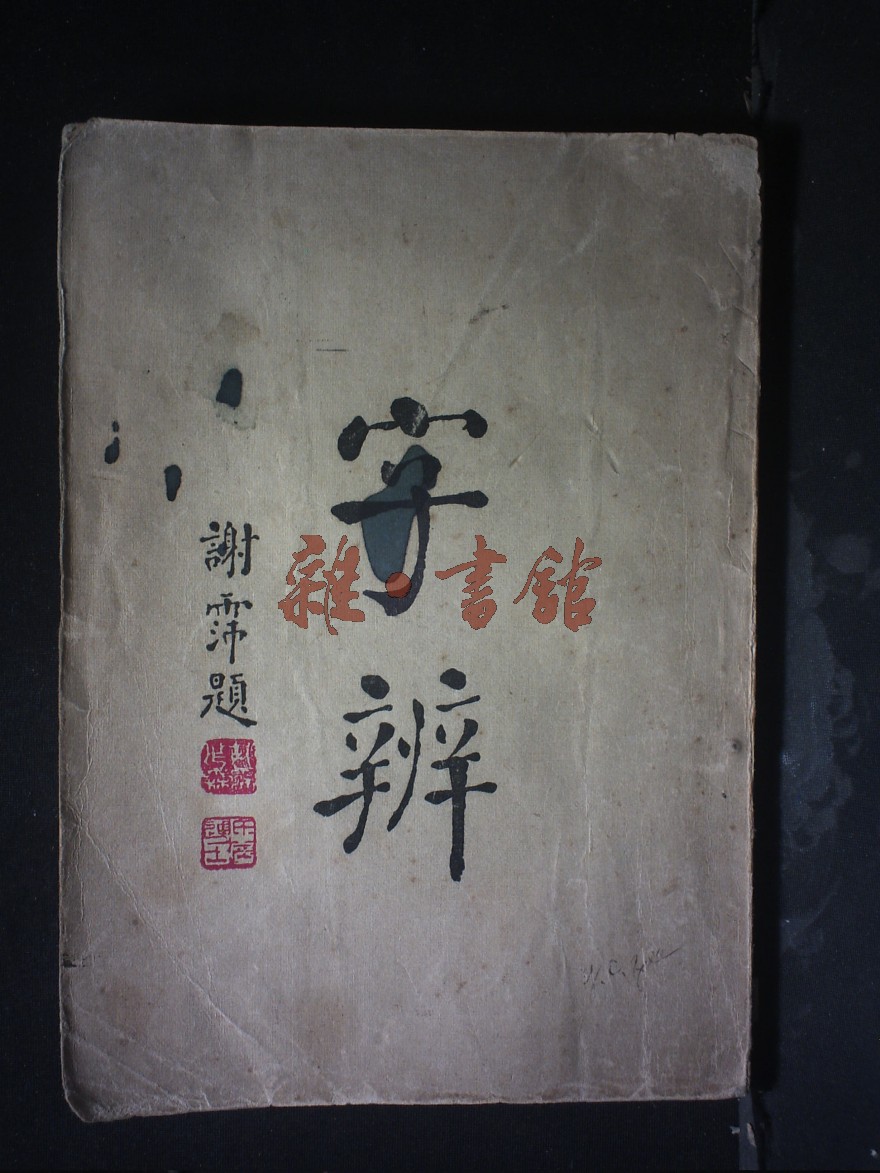 字辨
謝霈題
雜·書館